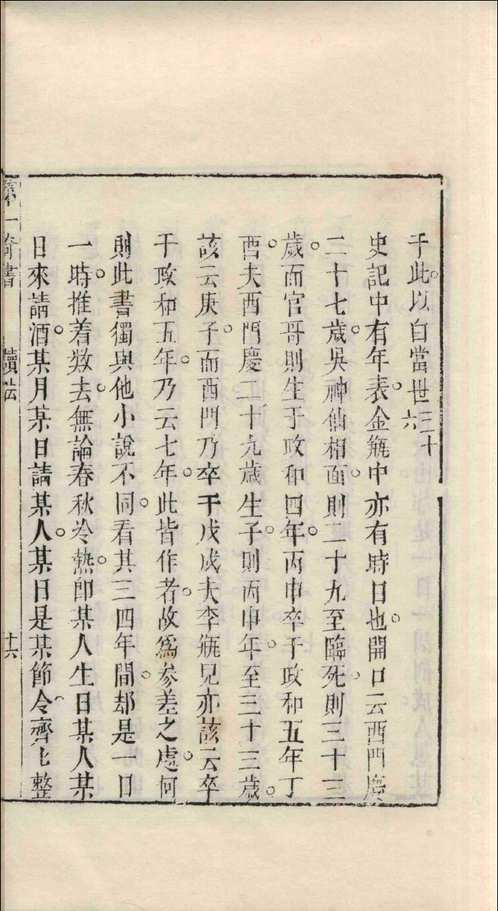 于此以自當世三十六
史記中有年表金瓶中亦有時日也開口云西門慶
二十七歲吳神仙相面則二十九至臨死則三十三
歲而官哥則生于政和四年丙申卒于政和五年丁
酉夫西門慶二十九歲生子則丙申年至三十三歲
該云庚子而西門乃卒于戊戌夫李瓶兒亦該云卒
于政和五年乃云七年此皆作者故爲參差之處何
則此書獨與他小說不同看其三四年間却是一日
一時推着數去無論春秋冷熱即某人生日某人某
日來請酒某月某日請某人某日是某節令齊齊整
第一奇書 讀法 十六